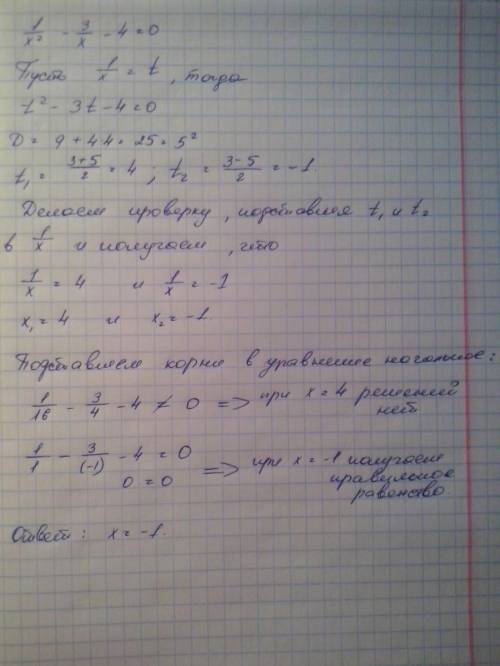 1/x² - 3/x - 4 = 0
Пусть 1/x = t, тогда
t² - 3t - 4 = 0
D = 9 + 4·4 = 25 = 5²
t₁ = (3+5)/2 = 4 ; t₂ = (3-5)/2 = -1.
Делаем проверку, подставляя t₁ и t₂
в 1/x и получаем, что
1/x = 4 и 1/x = -1
x₁ = 4 и x₂ = -1.
Подставляем корни в уравнение начальное:
1/16 - 3/4 - 4 ≠ 0 => при x = 4 решений
нет
1/1 - 3/(-1) - 4 = 0
0 = 0 => при x = -1 получаем
правильное
равенство.
Ответ: x = -1.